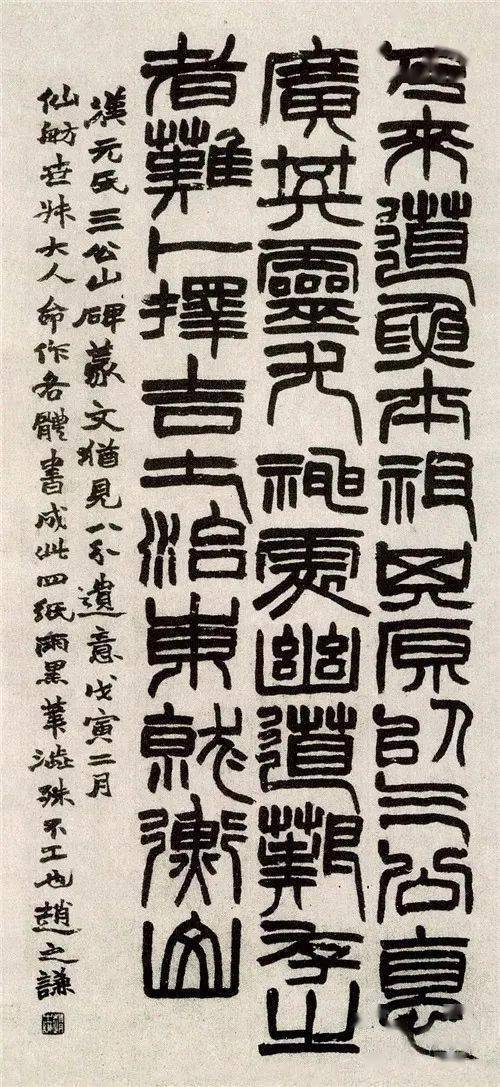 乃來道要本祖其原以三公悳
廣其靈尤神處幽道艱存之
者難卜擇吉土治東就衡山
漢元氏三公山碑篆文猶見八分遺意戊寅二月
仙舫世叔大人命作各體書成此四紙雨黑筆澁殊不工也趙之謙